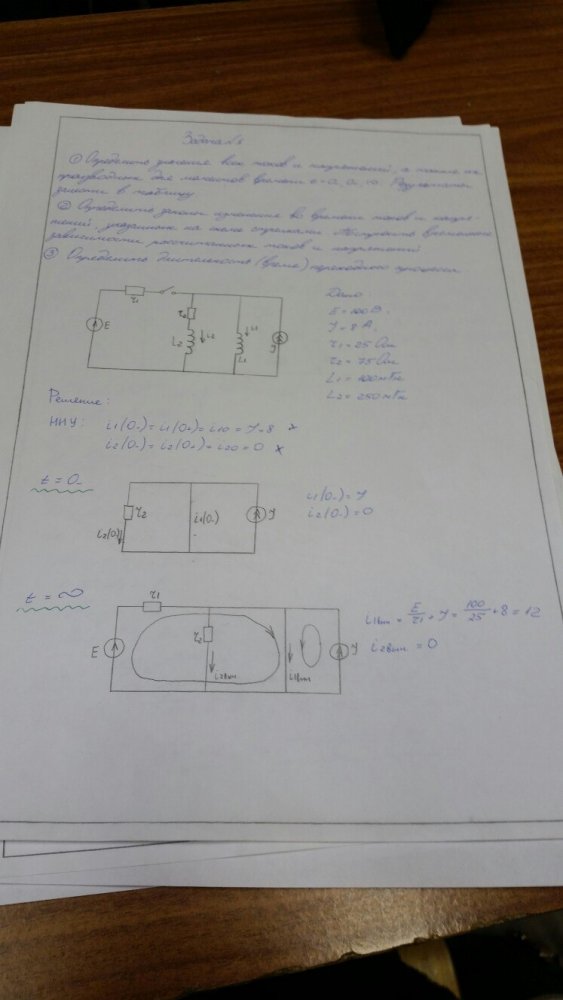 Задача №
① Определить значения всех токов и напряжений, а также их
производных для моментов времени t = 0-, 0+, ∞. Результаты
занести в таблицу
② Определить законы изменения во времени токов и напря-
жений, указанных на схеме стрелками. Построить
зависимости рассчитанных токов и напряжений
③ Определить длительность (время) переходного процесса
Дано:
E = 100 В.
J = 8 А.
r1 = 25 Ом
r2 = 75 Ом
L1 = 100 мГн
L2 = 250 мГн
r1
E
r2
L2
i2
L1
i1
J
Решение:
ННУ: i1(0-) = i1(0+) = i10 = J = 8 x
i2(0-) = i2(0+) = i20 = 0 x
t = 0-
r2
i2(0-)
i1(0-)
J
i1(0-) = J
i2(0-) = 0
t = ∞
r1
E
r2
i2вын
i1вын
J
i1вын = E/r1 + J = 100/25 + 8 = 12
i2вын = 0